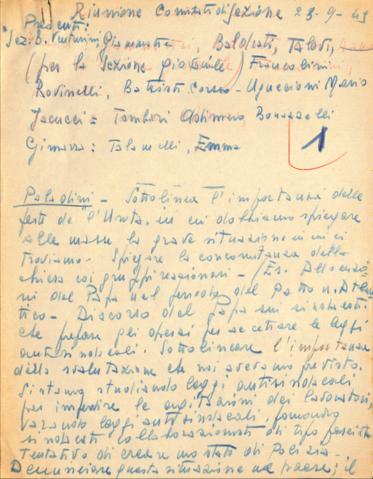 Riunione Comitato di Sezione 23-9-49
Presenti:
Sez. B. Venturini Giamantea, Baldrati, Talevi,
(per la Sezione giovanile) Francolini
Rovinelli, Battisti Corso - Uguccioni Mario
Jacucci = Tamburi Adimero,
Gimarra: Talamelli, Emma
1
Paladini - Sottolinea l'importanza delle
feste de l'Unità in cui dobbiamo spiegare
alle masse la grave situazione in cui ci
troviamo - Spiegare la concomitanza della
chiesa coi gruppi reazionari - (Es. Allocuzio
ni del Papa nel periodo del Patto N. Atlan
tico - Discorso del Papa sui sindacati
che prepara gli operai per accettare le leggi
antisindacali. Sottolineare l'importanza
della svalutazione che noi avevamo previsto.
Si stanno studiando leggi antisindacali
per impedire le agitazioni dei lavoratori,
varando leggi antisindacali, formando
sindacati collaborazionisti di tipo fascista
Tentativo di creare uno stato di Polizia -
Denunciare questa situazione nel paese; il